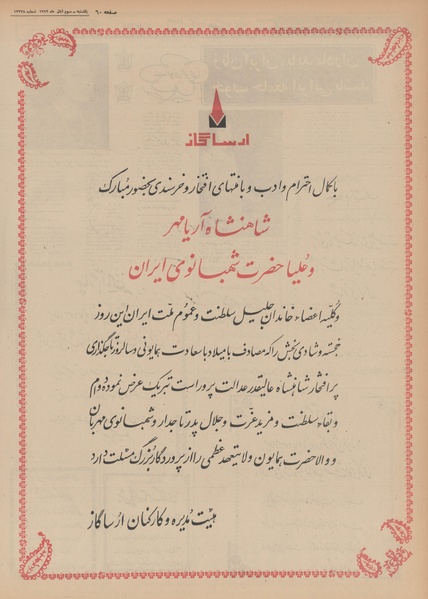 صفحه ۶۰
ارساگاز
با کمال احترام و ادب و با منتهای افتخار و خرسندی بحضور مبارک
شاهنشاه آریامهر
و علیا حضرت شهبانوی ایران
و کلیه اعضاء خاندان جلیل سلطنت و عموم ملت ایران این روز
خجسته و شادی بخش را که مصادف با میلاد با سعادت همایونی و سالروز تاجگذاری
پر افتخار شاهنشاه عالیقدر عدالت پرور است تبریک عرض نموده دوام
و بقاء سلطنت و مزید عزت و جلال پدر تاجدار و شهبانوی مهربان
و والاحضرت همایون ولایتعهد عظمی را از پروردگار بزرگ مسئلت دارد
هیئت مدیره و کارکنان ارساگاز